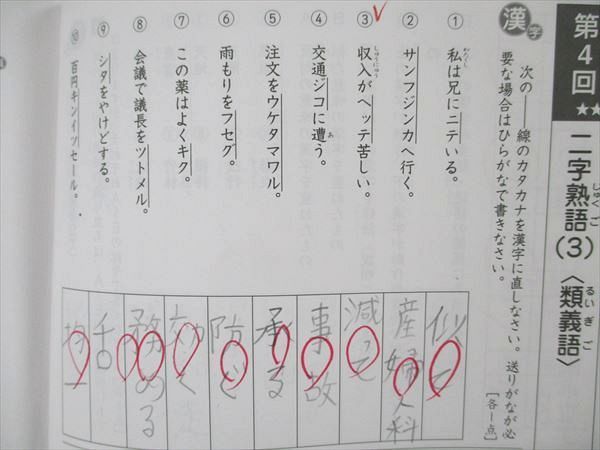 第4回
★★
二字熟語(3)〈類義語〉
じゅくご
るいぎご
漢字
次の――線のカタカナを漢字に直しなさい。送りがなが必
要な場合はひらがなで書きなさい。
[各1点]
① 私は兄にニテいる。
わたくし
② サンフジンカへ行く。
③ 収入がヘッテ苦しい。
しゅうにゅう
④ 交通ジコに遭う。
あ
⑤ 注文をウケタマワル。
⑥ 雨もりをフセグ。
⑦ この薬はよくキク。
⑧ 会議で議長をツトメル。
⑨ シタをやけどする。
⑩ 百円キンイツセール。
似て
産婦人科
減って
事故
承る
防ぐ
効く
務める
舌
均一